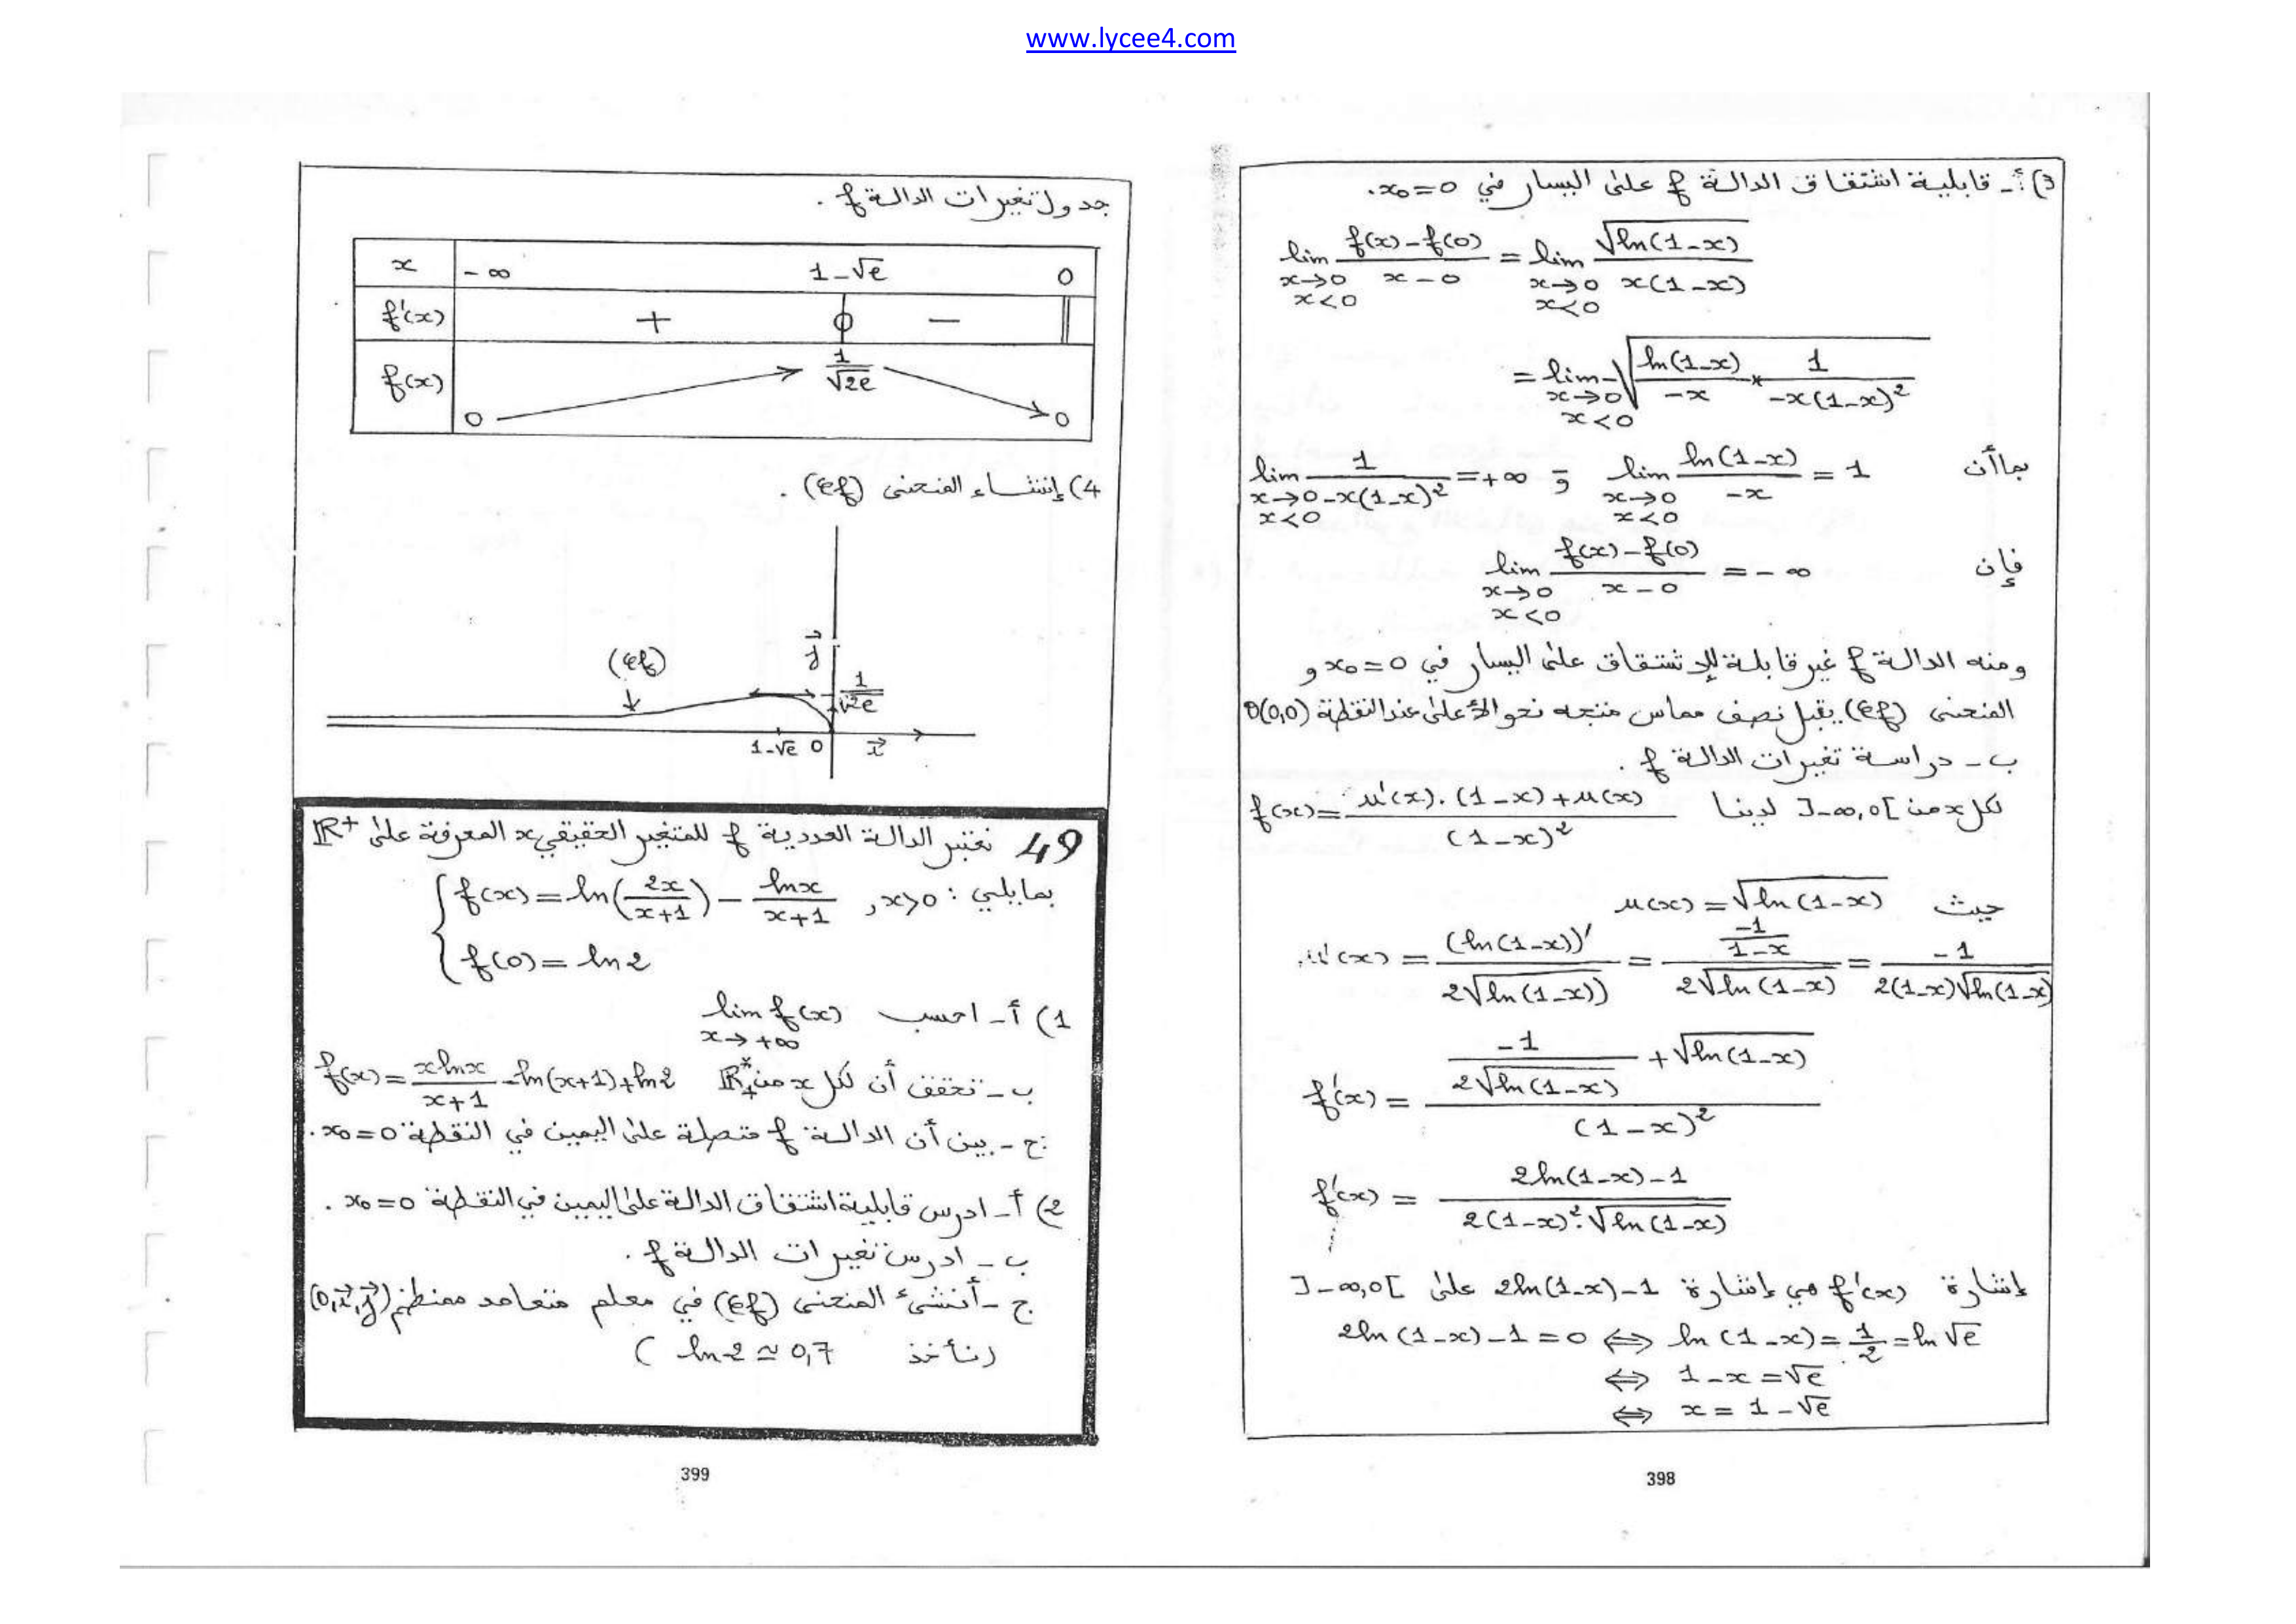 www.lycee4.com
3) أ- قابلية اشتقاق الدالة f على اليسار في x₀=0.
lim_{x→0, x<0} (f(x)-f(0))/(x-0) = lim_{x→0, x<0} √ln(1-x)/(x(1-x))
= lim_{x→0, x<0} -√(ln(1-x)/(-x) × 1/(-x(1-x)²))
بماأن lim_{x→0, x<0} ln(1-x)/(-x) = 1 و lim_{x→0, x<0} 1/(-x(1-x)²) = +∞
فإن lim_{x→0, x<0} (f(x)-f(0))/(x-0) = -∞
ومنه الدالة f غير قابلة للإشتقاق على اليسار في x₀=0 و
المنحنى (𝒞f) يقبل نصف مماس متجه نحو الأعلى عند النقطة O(0,0)
ب- دراسة تغيرات الدالة f.
لكل x من ]-∞,0[ لدينا f(x) = (u'(x).(1-x)+u(x))/(1-x)²
حيث u(x) = √ln(1-x)
u'(x) = (ln(1-x))'/(2√ln(1-x)) = (-1/(1-x))/(2√ln(1-x)) = -1/(2(1-x)√ln(1-x))
f'(x) = (-1/(2√ln(1-x)) + √ln(1-x))/(1-x)²
f'(x) = (2ln(1-x)-1)/(2(1-x)².√ln(1-x))
إشارة f'(x) هي إشارة 2ln(1-x)-1 على ]-∞,0[
2ln(1-x)-1=0 ⟺ ln(1-x)=1/2=ln√e
⟺ 1-x=√e
⟺ x=1-√e
398
جدول تغيرات الدالة f.
x -∞ 1-√e 0
f'(x) + 0 -
f(x) 0 1/√2e 0
4) إنشاء المنحنى (𝒞f).
(𝒞f)
j⃗
1/√2e
1-√e 0 i⃗
49 نعتبر الدالة العددية f للمتغير الحقيقي x المعرفة على ℝ⁺
بمايلي: f(x) = ln(2x/(x+1)) - lnx/(x+1) , x>0
f(0) = ln2
1) أ- احسب lim_{x→+∞} f(x)
ب- تحقق أن لكل x من ℝ₊* f(x) = xlnx/(x+1) - ln(x+1)+ln2
ج- بين أن الدالة f متصلة على اليمين في النقطة x₀=0.
2) أ- ادرس قابلية اشتقاق الدالة على اليمين في النقطة x₀=0.
ب- ادرس تغيرات الدالة f.
ج- أنشئ المنحنى (𝒞f) في معلم متعامد ممنظم (O,i⃗,j⃗)
(نأخذ ln2≃0,7)
399